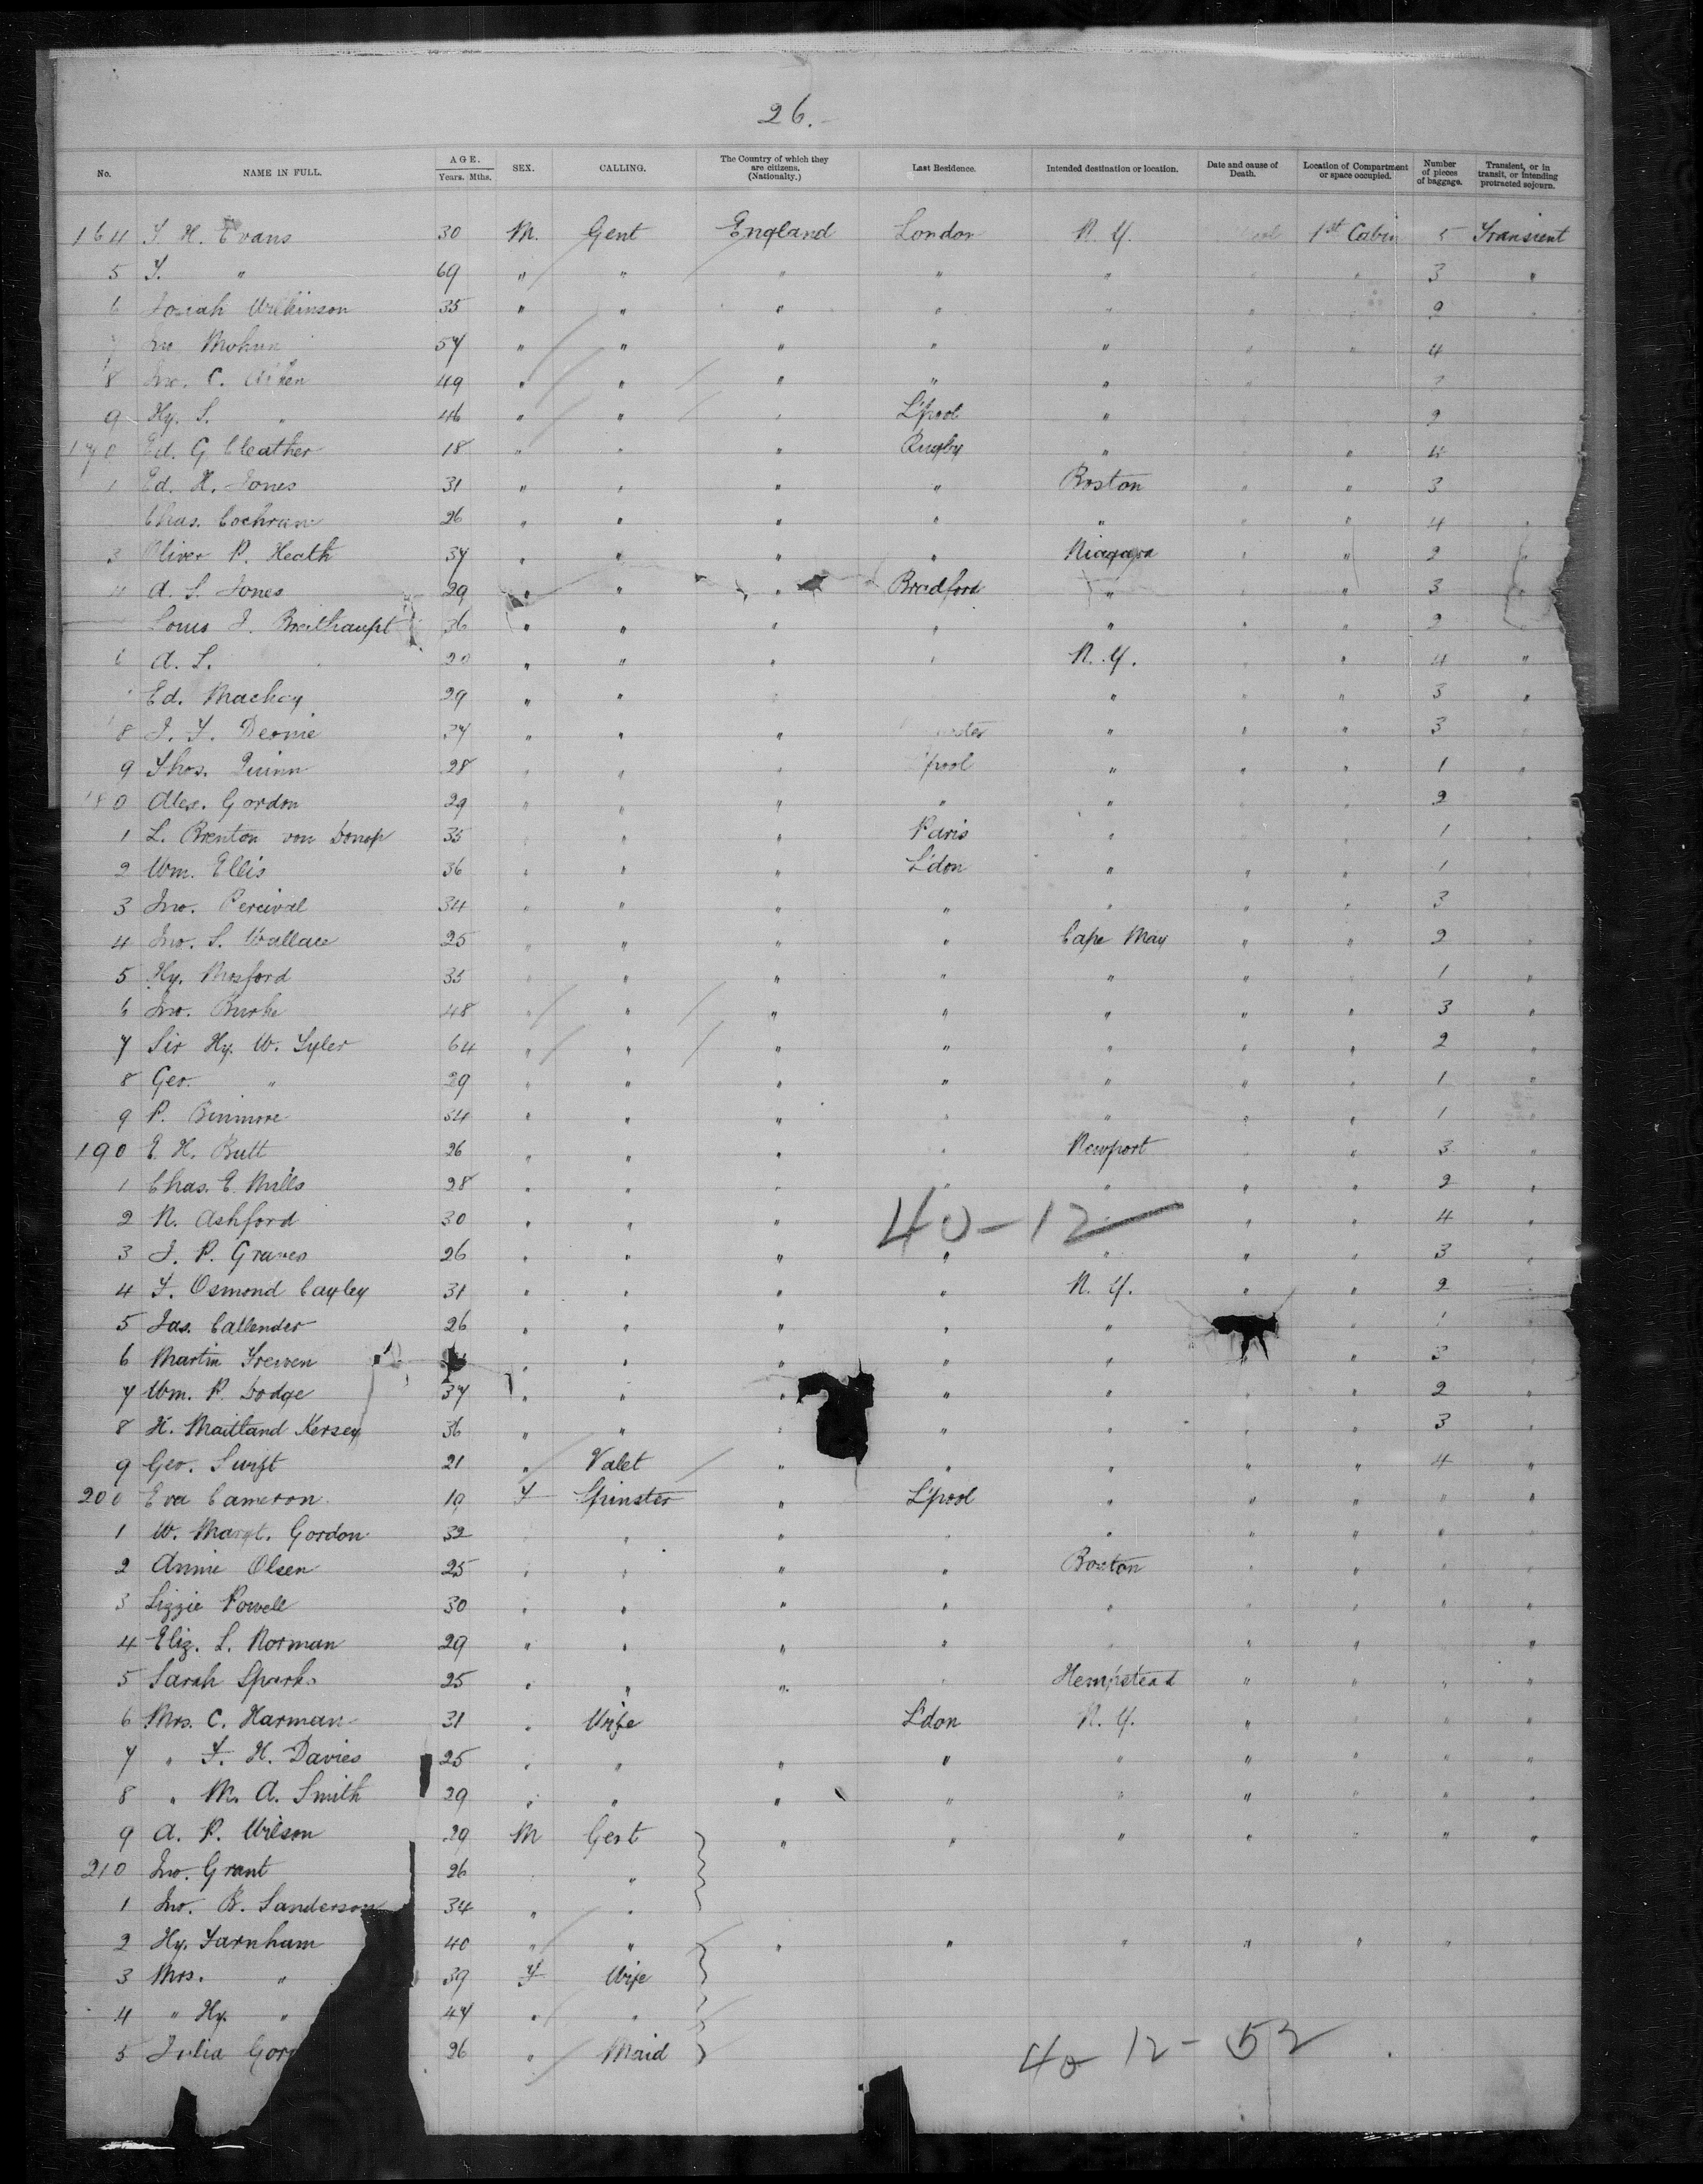 26.
No. NAME IN FULL. AGE. Years. Mths. SEX. CALLING. The Country of which they are citizens, (Nationalty.) Last Residence. Intended destination or location. Date and cause of Death. Location of Compartment or space occupied. Number of pieces of baggage. Transient, or in transit, or intending protracted sojourn.
164 T. H. Evans 30 M. Gent England London N. Y. 1st Cabin 5 Transient
5 T. " 69 " " " " " " 3 "
6 Josiah Wilkinson 35 " " " " " " 2
Mohun 57 " " " " " " 4
8 Jno. C. Aitken 49 " " " " "
9 Hy. S. " 46 " " " L'pool " 2
170 Ed. G Cleather 18 " " " Rugby " " 4
1 Ed. H. Jones 31 " " " " Boston " " 3
Chas. Cochran 26 " " " " " " " 4 "
3 Oliver P. Heath 37 " " " " Niagara " " 2 "
4 A. S. Jones 29 " " " Bradford " " 3
Louis J. Breithaupt 36 " " " " " " " 2
6 A. L. 20 " " " " N. Y. " " 4 "
Ed. Mackay 29 " " " " " " 3 "
8 J. T. 34 " " " " " " 3
9 Thos. Quinn 28 " " " pool " " " 1 "
180 Alex. Gordon 29 " " " " " " " 2
1 L. Brenton von Donop 35 " " " Paris " " 1 "
2 Wm. Ellis 36 " " " L'don " " " 1 "
3 Jno. Percival 34 " " " " " " " 3
4 Jno. S. Wallace 25 " " " " Cape May " " 2 "
5 Hy. Mosford 35 " " " " " " 1 "
6 Jno. Burke 48 " " " " " " " 3 "
7 Sir Hy. W. Tyler 64 " " " " " " " 2 "
8 Geo. " 29 " " " " " " " 1 "
9 P. Binmore 34 " " " " " " " 1 "
190 E. H. Butt 26 " " " " Newport " " 3 "
1 Chas. E. Mills 28 " " " " " " " 2 "
2 N. Ashford 30 " " " " " " 4 "
40-12
3 J. P. Graves 26 " " " " " " " 3 "
4 T. Osmond Cayley 31 " " " " N. Y. " " 2 "
5 Jas. Callender 26 " " " " " " 1 "
6 Martin Frewen " " " " " " " 3 "
7 Wm. P. Dodge 37 " " " " " " " 2 "
8 H. Maitland Kersey 36 " " " " " " " 3 "
9 Geo. Swift 21 " Valet " " " " " 4 "
200 Eva Cameron 19 F Spinster " L'pool " " " " "
1 W. Margt. Gordon 32 " " " " " " " " "
2 Annie Olsen 25 " " " " Boston " " " "
3 Lizzie Powell 30 " " " " " " " " "
4 Eliz. L. Norman 29 " " " " " " " "
5 Sarah Sparks 25 " " " " Hempstead " " " "
6 Mrs. C. Harman 31 " Wife L'don N. Y. " " " "
7 " F. H. Davies 25 " " " " " " " " "
8 " M. A. Smith 29 " " " " " " " " "
9 A. P. Wilson 29 M Gent " " " " " " "
210 Jno. Grant 26 "
1 Jno. B. Sanderson 34 " "
2 Hy. Farnham 40 " " " " " " " "
3 Mrs. " 39 F Wife
4 " Hy. " 47 " "
5 Julia 26 " Maid
40 12 - 52